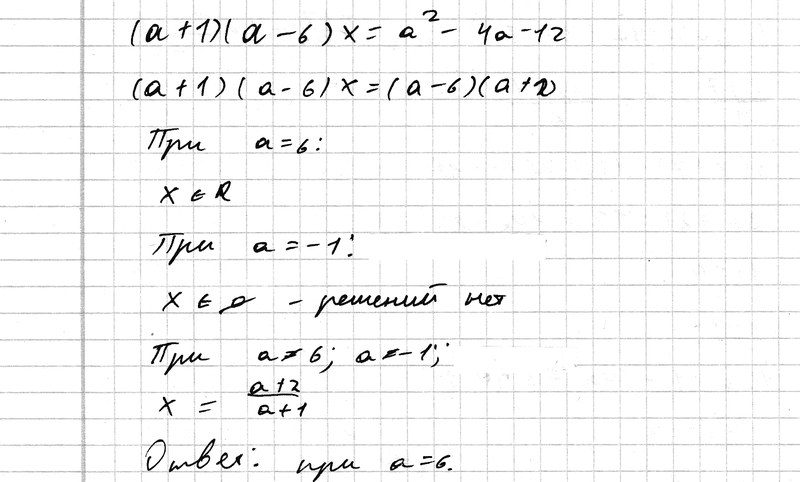 (a+1)(a-6)x=a²-4a-12
(a+1)(a-6)x=(a-6)(a+2)
При a=6:
x ∈ R
При a=-1:
x ∈ ∅ - решений нет
При a≠6; a≠-1;
x = (a+2)/(a+1)
Ответ: при a=6.